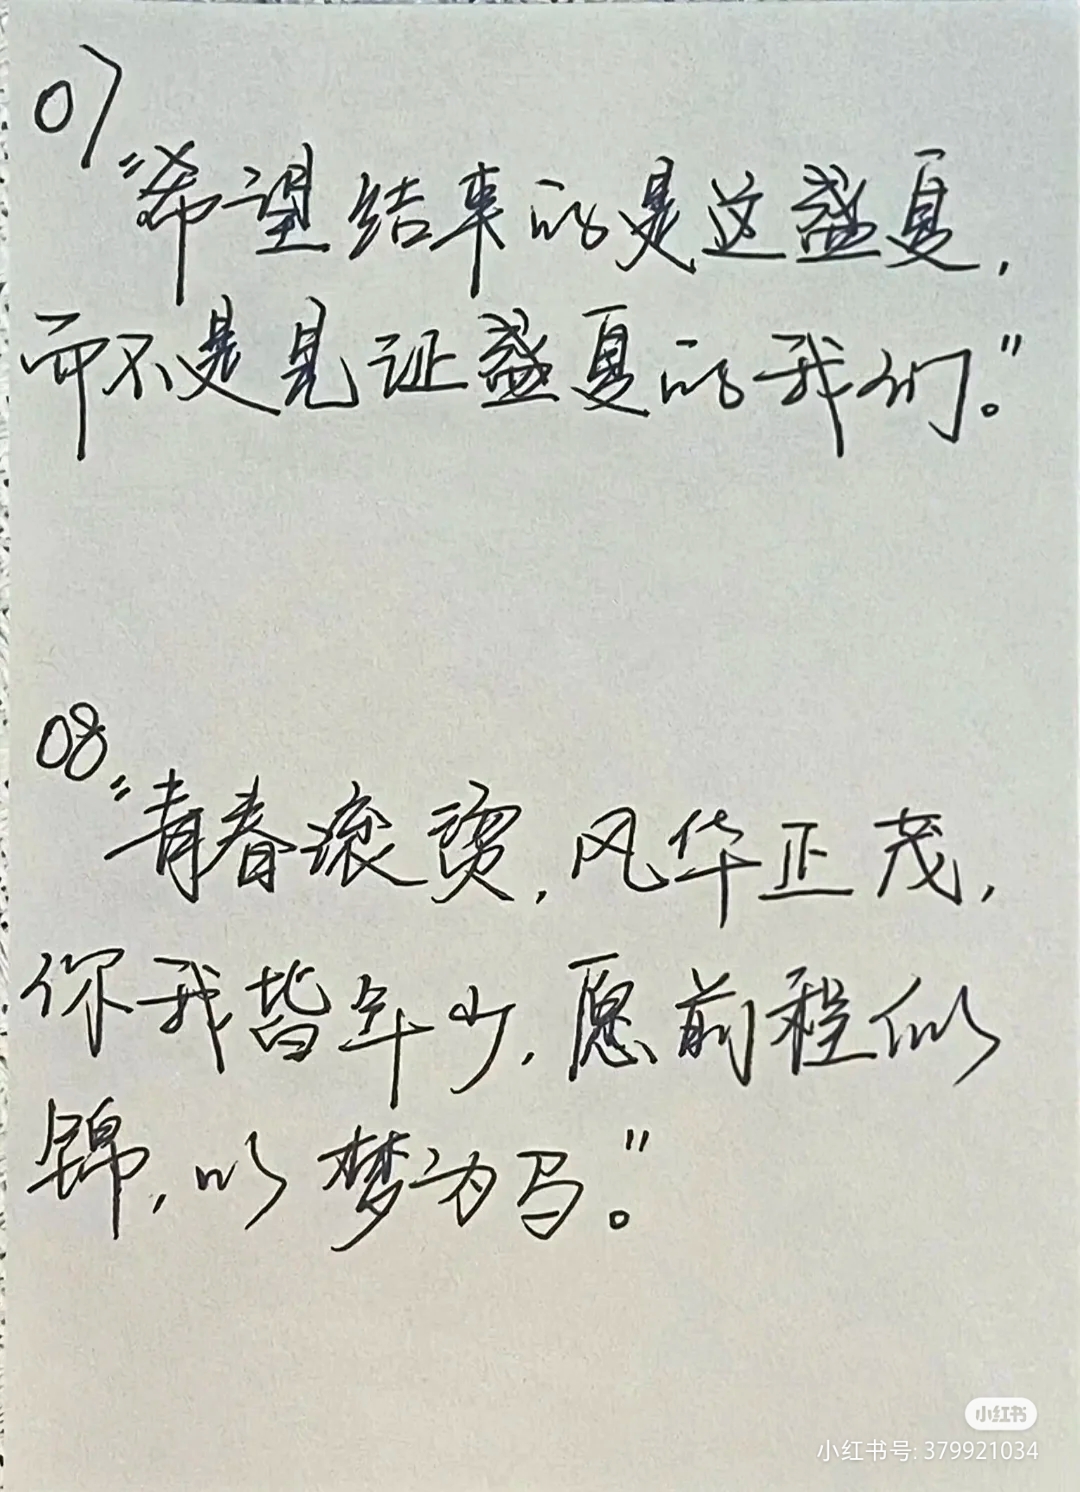 07
“希望结束的是这盛夏,
而不是见证盛夏的我们。”
08
“青春滚烫,风华正茂,
你我皆年少,愿前程似
锦,以梦为马。”
小红书
小红书号: 379921034